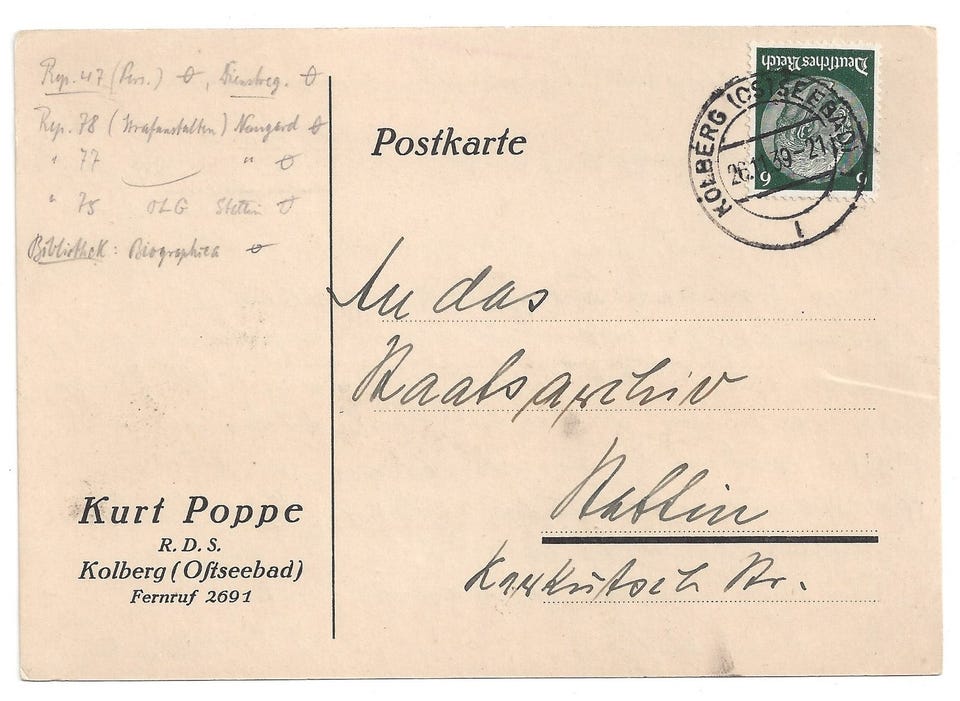 Rep. 47 (Pers.) ⌀, Dienstreg. ⌀
Rep. 78 (Strafanstalten) Naugard ⌀
" 77 " ⌀
" 75 OLG Stettin ⌀
Bibliothek: Biographica ⌀
Postkarte
Deutsches Reich
6 6
KOLBERG (OSTSEEBAD)
26.11.39. 21
1
An das
Staatsarchiv
Stettin
Karkutsch Str.
Kurt Poppe
R. D. S.
Kolberg (Oſtseebad)
Fernruf 2691